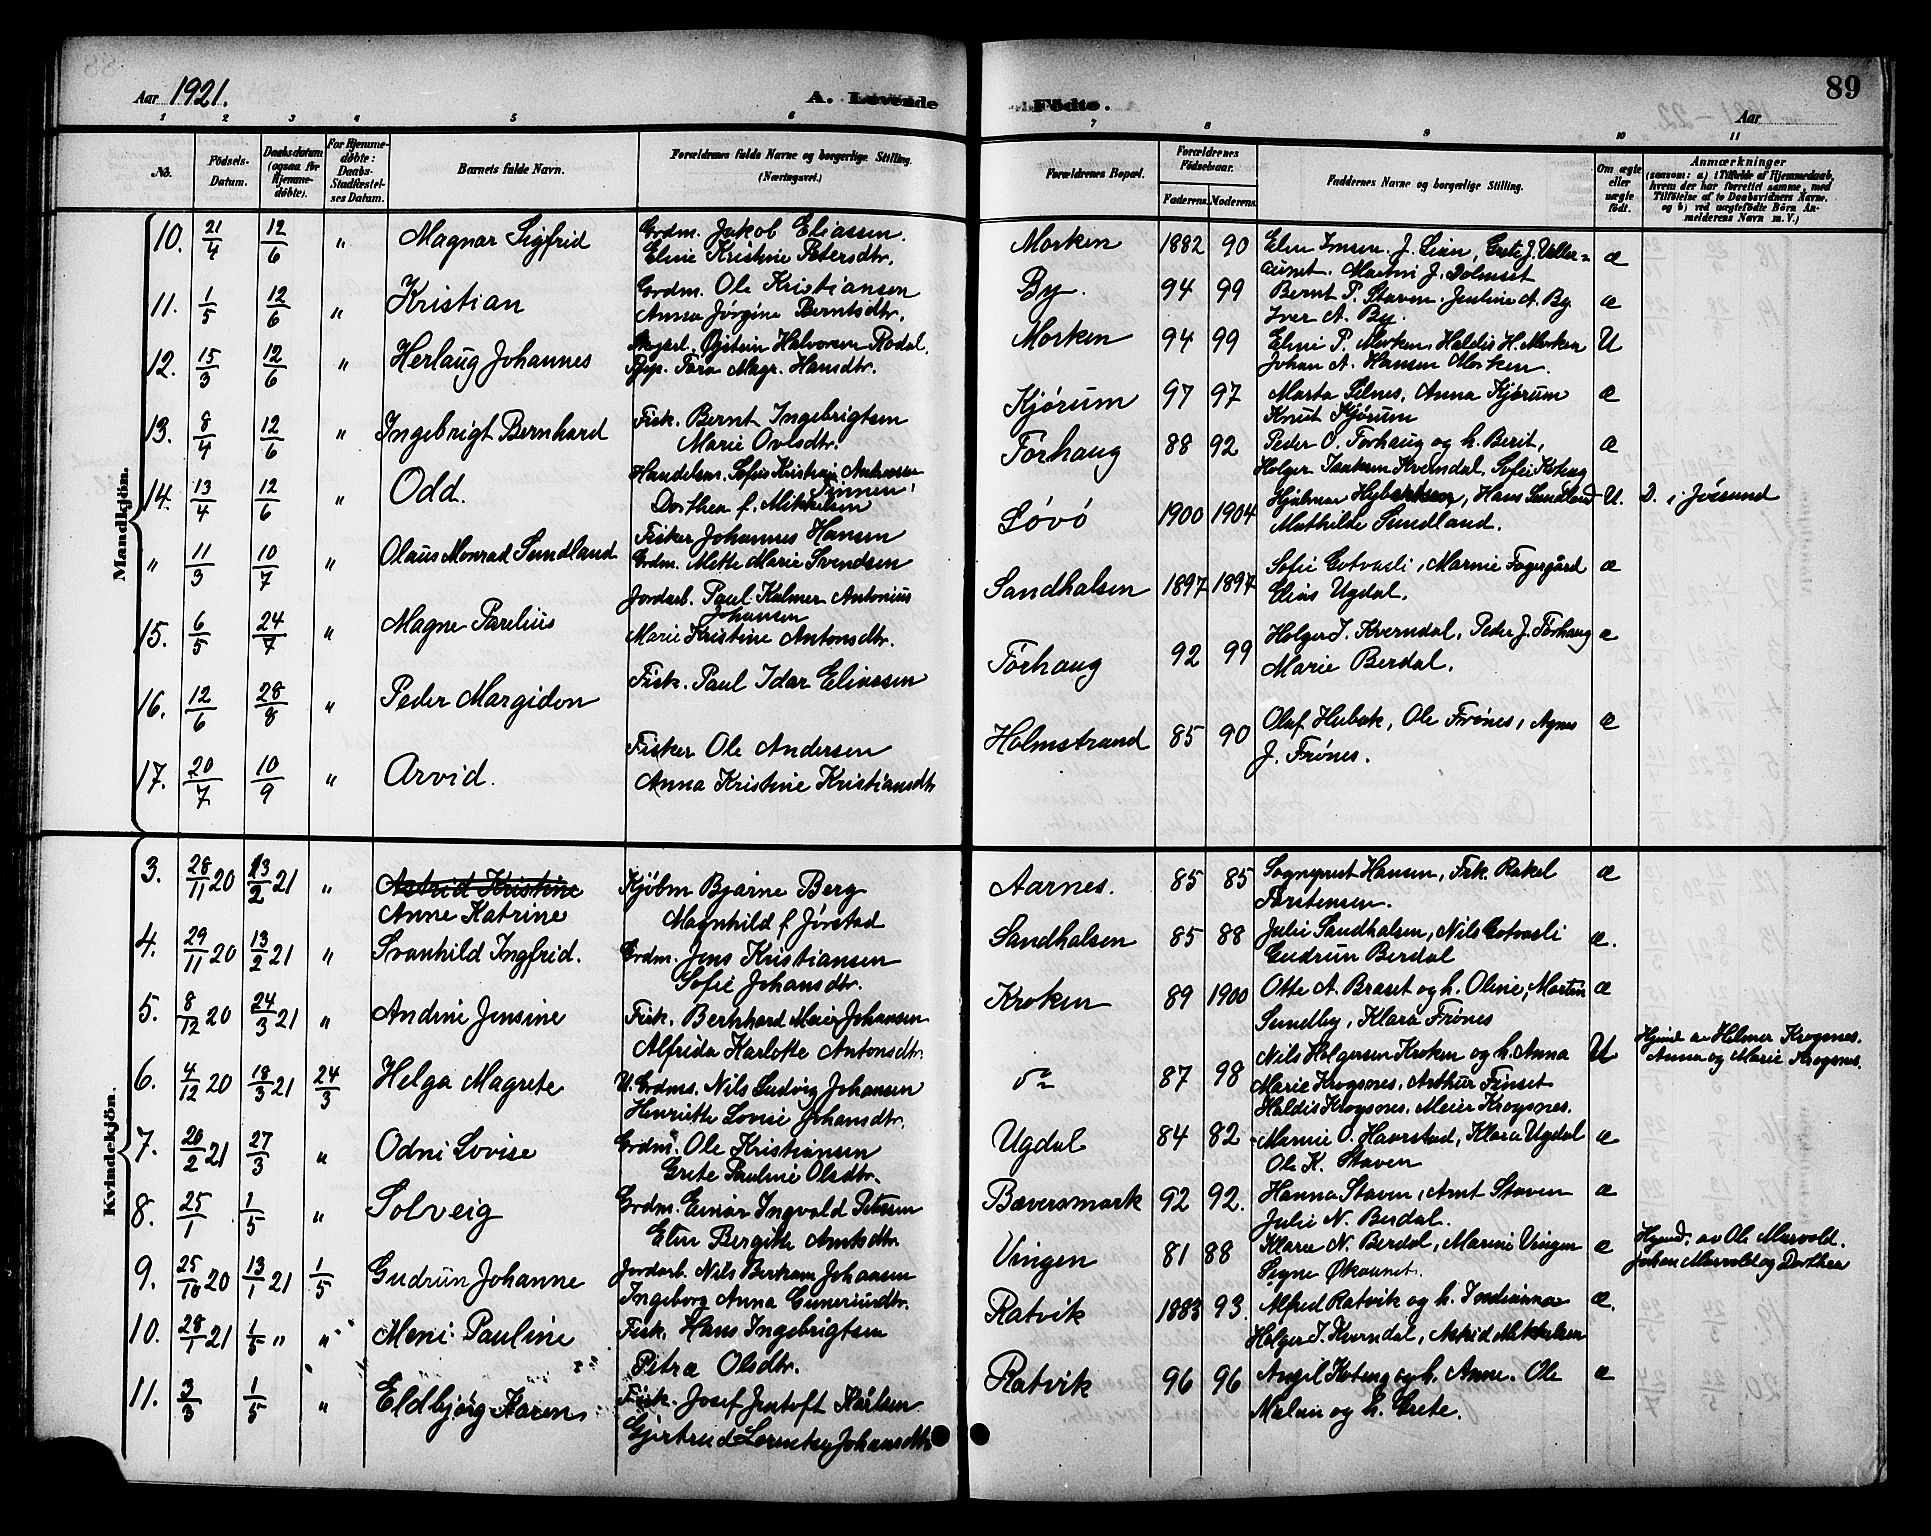 Aar 1921.
A. Levende
Födte.
89
Aar
1 2 3 4 5 6 7 8 9 10 11
No.
Födsels-Datum.
Daabsdatum (ogsaa for Hjemmedøbte).
For Hjemmedøbte: Daabs-Stadfæstelses Datum.
Barnets fulde Navn.
Forældrenes fulde Navne og borgerlige Stilling. (Næringsvei.)
Forældrenes Bopæl.
Forældrenes Födselsaar.
Faderens. Moderens.
Faddernes Navne og borgerlige Stilling.
Om ægte eller uægte født.
Anmærkninger
(saasom: a) i Tilfælde af Hjemmedaab, hvem der har forrettet samme, med Tilföielse af to Daabsvidners Navne. og b) ved uægtefödte Börn Anmelderens Navn m. V.)
Mandkjön.
10. 21/4 12/6 " Magnar Sigfrid Grdm. Jakob Eliassen. Morken 1882 90
Eline Kristine Petersdtr. Martin J. Dolmset æ
11. 1/5 12/6 " Kristian Grdm. Ole Kristiansen By. 94 99 Bernt P. Staven. Justine A. By æ
Anna Jørgine Berntsdtr. Iver A. By.
12. 15/3 12/6 " Herlaug Johannes Øystein Halvorsen Rodal. Morken 94 99 Eline P. Morken, Haldis H. Morken U
Hansdtr. Johan A. Hansen Morken.
13. 8/4 12/6 " Ingebrigt Bernhard Fisk. Bernt Ingebrigtsen Kjørum 97 97 Marta Selnes, Anna Kjørum æ
Marie Ovlsdtr. Knut Kjørum
14. 13/4 12/6 " Odd. Handelsm. Sofus Kristian Andresen Sinnen, Forhaug 88 92 Peder O. Forhaug og h. Berit, æ
Dorthea f. Mikkelsen Holger Isaksen Kverndal, Sofie Koteng
" 11/3 10/7 " Olaus Monrad Sundland Fisker Johannes Hansen Løvö 1900 1904 Hjalmar Hybertsen, Hans Sundland U. D. i Jössund
Grdm. Mette Marie Svendsen Mathilde Sundland.
15. 6/5 24/7 " Magne Parelius Jordarb. Paul Kalmer Antonius Johansen Sandhalsen 1897 1897 Sofie Gotvasli, Marnie Fagergård æ
Marie Kristine Antonsdtr. Elias Ugdal.
16. 12/6 28/8 " Peder Margidon Fisk. Paul Idar Eliassen Forhaug 92 99 Holger I. Kverndal, Peder J. Forhaug æ
Marie Berdal.
17. 20/7 10/9 " Arvid. Fisker Ole Andersen Holmstrand 85 90 Olaf Hubak, Ole Frønes, Agnes æ
Anna Kristine Kristiansdtr J. Frønes.
Kvindekjön.
3. 28/11 20 13/2 21 " Astrid Kristine Kjøbm Bjarne Berg Aarnes. 85 85 Sogneprest Hansen, Frk. Rakel æ
Anne Katrine Magnhild f Jørstad Torstensen.
4. 29/11 20 13/2 21 " Svanhild Ingfrid. Grdm. Jens Kristiansen Sandhalsen 85 88 Julie Sandhalsen, Nils Gotvasli æ.
Sofie Johansdtr. Gudrun Berdal
5. 8/12 20 24/3 21 " Andrine Jensine Fisk. Bernhard Meier Johansen Kroken 89 1900 Otte A. Braset og h. Oline, Morten æ
Alfrida Karlotte Antonsdtr. Sundby, Klara Frønes
6. 4/12 20 18/3 21 24/3 Helga Magrete U. Grdms. Nils Ludvig Johansen do 87 98 Nils Holgersen Kroken og h. Anna U Hjemd. av Helmer Krogsnes.
Henriette Lovise Johansdtr. Marie Krogsnes, Arthur Finset Anna og Marie Krogsnes.
Haldis Krogsnes. Meier Krogsnes.
7. 20/2 21 27/3 " Odni Lovise Grdm. Ole Kristiansen Ugdal 84 82 Marnie O. Havrstad, Klara Ugdal æ
Grete Pauline Olsdtr. Ole K. Staven
8. 25/1 1/5 " Solveig Grdm. Einar Ingvald Petersen Bæversmark 92 92. Hanna Staven, Arnt Staven æ
Elen Bergitte Arntsdtr Julie N. Berdal.
9. 25/10 20 13/1 21 1/5 Gudrun Johanne Jordarb. Nils Bertram Johansen Vingen 81 88 Klara N. Berdal, Marine Vingen æ Hjemd. av Ole Mærvold.
Ingeborg Anna Gunersundtr. Signe Økaunet. Johan Mærvold og Dorthea
10. 28/1 21 1/5 " " Meni Pauline Fisk. Hans Ingebrigtsen Ratvik 1883 93. Alfred Ratvik og h. Indianna æ.
Petra Olsdtr. Holger I. Kverndal, Astrid Mikkelsen
11. 3/3 1/5 " Eldbjørg Karen Fisk. Josef Jentoft Karlsen Ratvik 96 96 Angel Koteng og h. Anne. Ole æ
Gjertrud Johansdtr Malan og h. Grete.